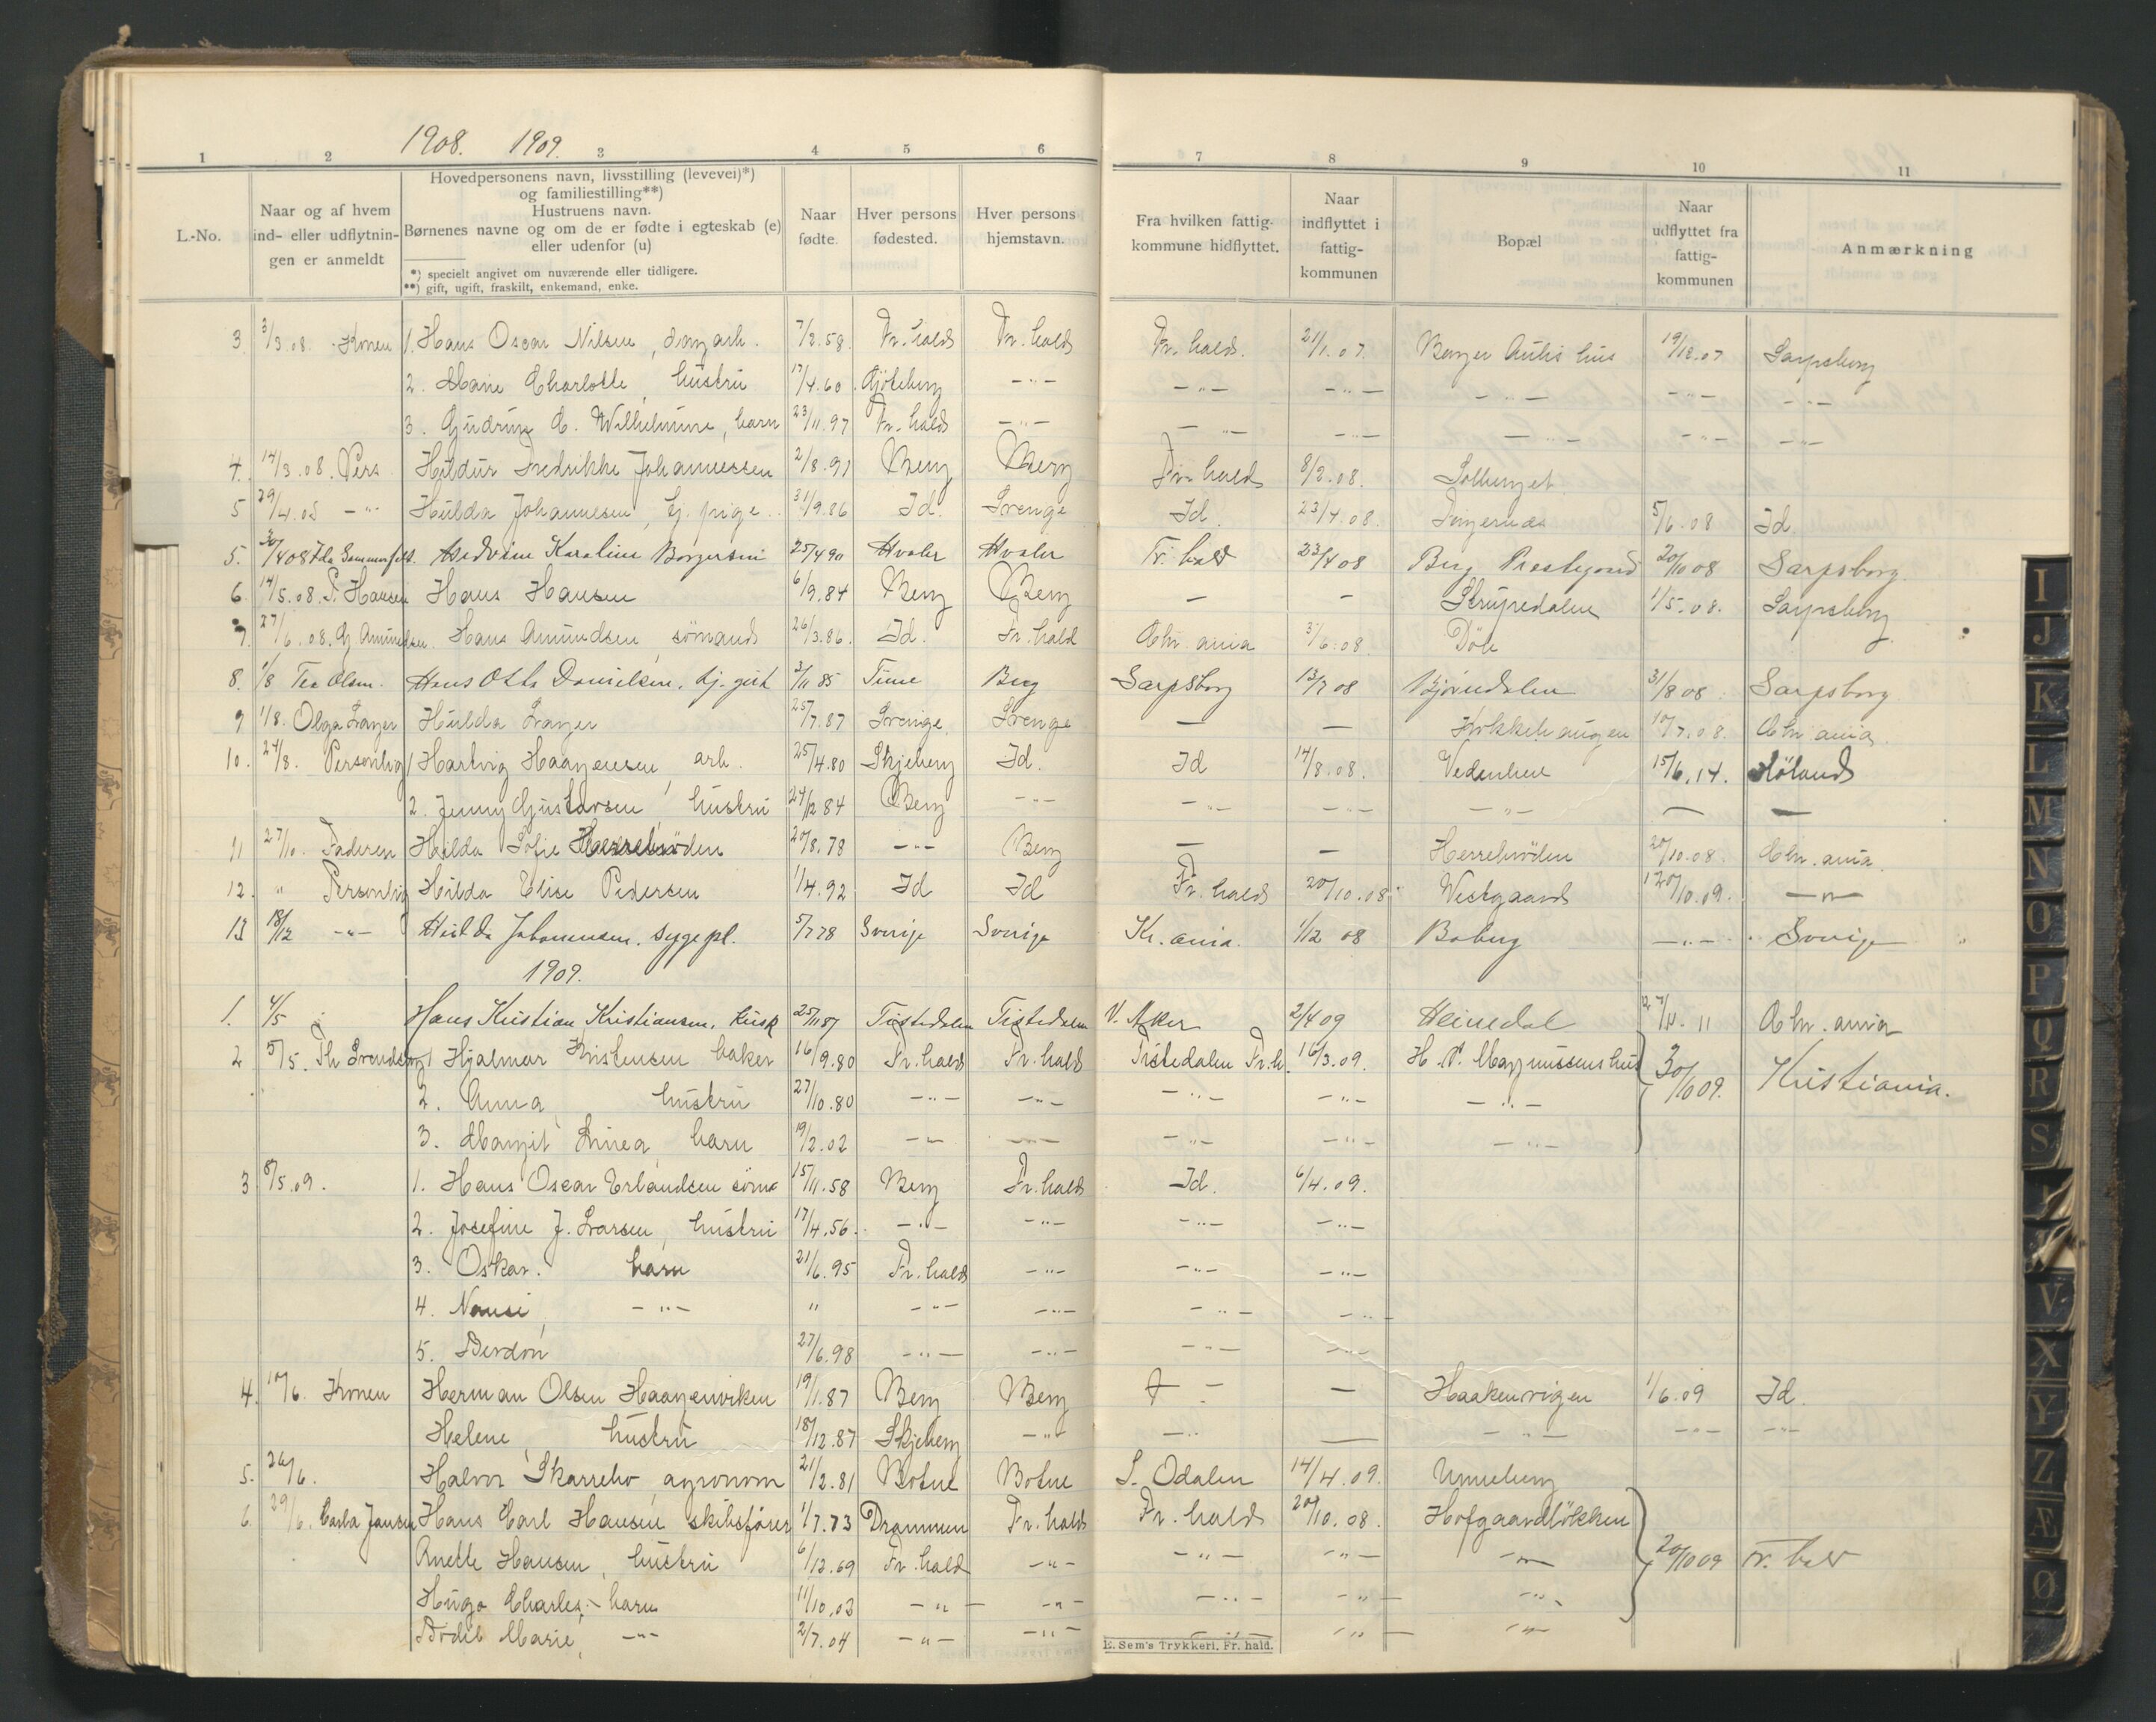 1908. 1909.
1 2 3 4 5 6 7 8 9 10 11
L.-No.
Naar og af hvem ind- eller udflytnin-gen er anmeldt
Hovedpersonens navn, livsstilling (levevei)*)
og familiestilling**)
Hustruens navn.
Børnenes navne og om de er fødte i egteskab (e)
eller udenfor (u)
*) specielt angivet om nuværende eller tidligere.
**) gift, ugift, fraskilt, enkemand, enke.
Naar fødte.
Hver persons fødested.
Hver persons hjemstavn.
Fra hvilken fattig-kommune hidflyttet.
Naar indflyttet i fattig-kommunen
Bopæl
Naar udflyttet fra fattig-kommunen
Anmærkning
3 3/3.08. Konen 1. Hans Oscar Nilsen, dagarb. 7/2.58. Fr.hald Fr.hald Fr.hald. 21/1.07. Berger Aulis hus 19/12.07 Sarpsborg
2. Marie Charlotte, hustru 17/4.60 Gjøteborg -"- -"- -"- -"- -"- -"-
3. Gudrun C. Wilhelmine, barn 23/11.97 Fr.hald -"- -"- -"- -"- -"- -"-
4. 14/3.08. Pers Hildur Fredrikke Johannessen 2/8.91 Berg Berg Fr.hald 8/2.08.
5 29/4.08 -"- Hulda Johannesen, tj.pige. 31/9.86 Id. Sverige Id. 23/4.08. 5/6.08 Id
5. 30/4 08 Ida Sommerfelt. Hedvine Karoline Borgersen 25/4 90 Hvaler Hvaler Fr.hald 23/4 08 Berg Prestegaard 20/10 08 Sarpsborg
6. 14/5.08. P. Hansen Hans Hansen 6/9.84 Berg Berg — — Strupedalen 1/5.08. Sarpsborg
7. 27/6.08. G Amundsen. Hans Amundsen, sömand 26/3.86. Id. Fr.hald Chr.ania 3/6.08. Döle
8. 1/8 Tea Olsen. Hans Otto Danielsen, tj.gut 3/11 85 Tune Berg Sarpsborg 13/7 08 Bjørndalen 31/8 08 Sarpsborg
9 1/8. Olga Langer Hulda Langer 25/7.87 Sverige. Sverige — — Kokkehaugen 10/7.08. Chr.ania.
10. 24/8. Personlig 1 Hartvig Haagensen, arb. 25/4.80 Skjeberg Id. Id 14/8.08. Vedenhue 15/6.14. Höland
2. Jenny Gustavsen, hustru 24/12 84 Berg -"- -"- -"- -"- — —
11 27/10. Faderen Hilda Sofie Herrebröden 20/8.78 -"- Berg — — Herrebröden 20/10.08. Chr.ania.
12. " Personlig Hilda Elise Pedersen 1/4.92 Id Id Fr.hald 20/10.08. Vestgaard 20/10.09. -"-
13 18/12 -"- Hilda Johannesen. sygepl. 5/7 78 Sverige Sverige Kr.ania. 1/12 08 Boberg -"- Sverige
1909.
1. 4/5 Hans Kristian Kristiansen, kusk 25/11 87 Tistedalen Tistedalen V. Aker 2/4 09 Heinedal 11 Chr.ania
2 5/5. Th Svendsen 1 Hjalmar Kristensen baker 16/9.80 Fr.hald Fr.hald Tistedalen Fr.h. 16/3.09. H. A. Magnussens hus 30/10 09. Kristiania.
2. Anna, hustru 27/10.80 -"- -"- -"- -"- -"-
3. Margit Linea, barn 19/2.02 -"- -"- -"- -"- -"-
3 8/5.09. 1. Hans Oscar Erlandsen söm 15/11.58 Berg Fr.hald Id. 6/4.09.
2. Josefine J. Larsen, hustru 17/4.56. -"- -"- -"- -"-
3. Oskar. barn 21/6.95 Fr.hald -"- -"- -"-
4. Nansi, -"- " -"- -"- -"- -"-
5. 27/6.98 -"- -"- -"- -"-
4. 10/6. Konen Herman Olsen Haagenviken 19/1.87 Berg Berg — — Haakenvigen 1/6.09 Id.
Helene, hustru 18/12.87 Skjeberg -"- -"- — -"- -"- -"-
5. 26/6. Halvor Skarrebo, agronom 21/2.81 Botne Botne S. Odalen 14/4.09. Unneberg
6. 29/6. Carla Jansen Hans Carl Hansen skibsfører 1/7.73 Drammen Fr.hald Fr.hald 20/10.08. Hofgaardlökken 20/10 09 Fr.hald
Anette Hansen, hustru 6/12.69 Fr.hald -"- -"- -"- -"-
Hugo Charles, barn 11/10.02 -"- -"- -"- -"- -"-
Bodil Marie, -"- 2/7.04 -"- -"- -"- -"- -"-
E. Sem's Trykkeri, Fr.hald.
I
J
K
L
M
N
O
P
Q
R
S
V
X
Y
Z
Æ
Ø